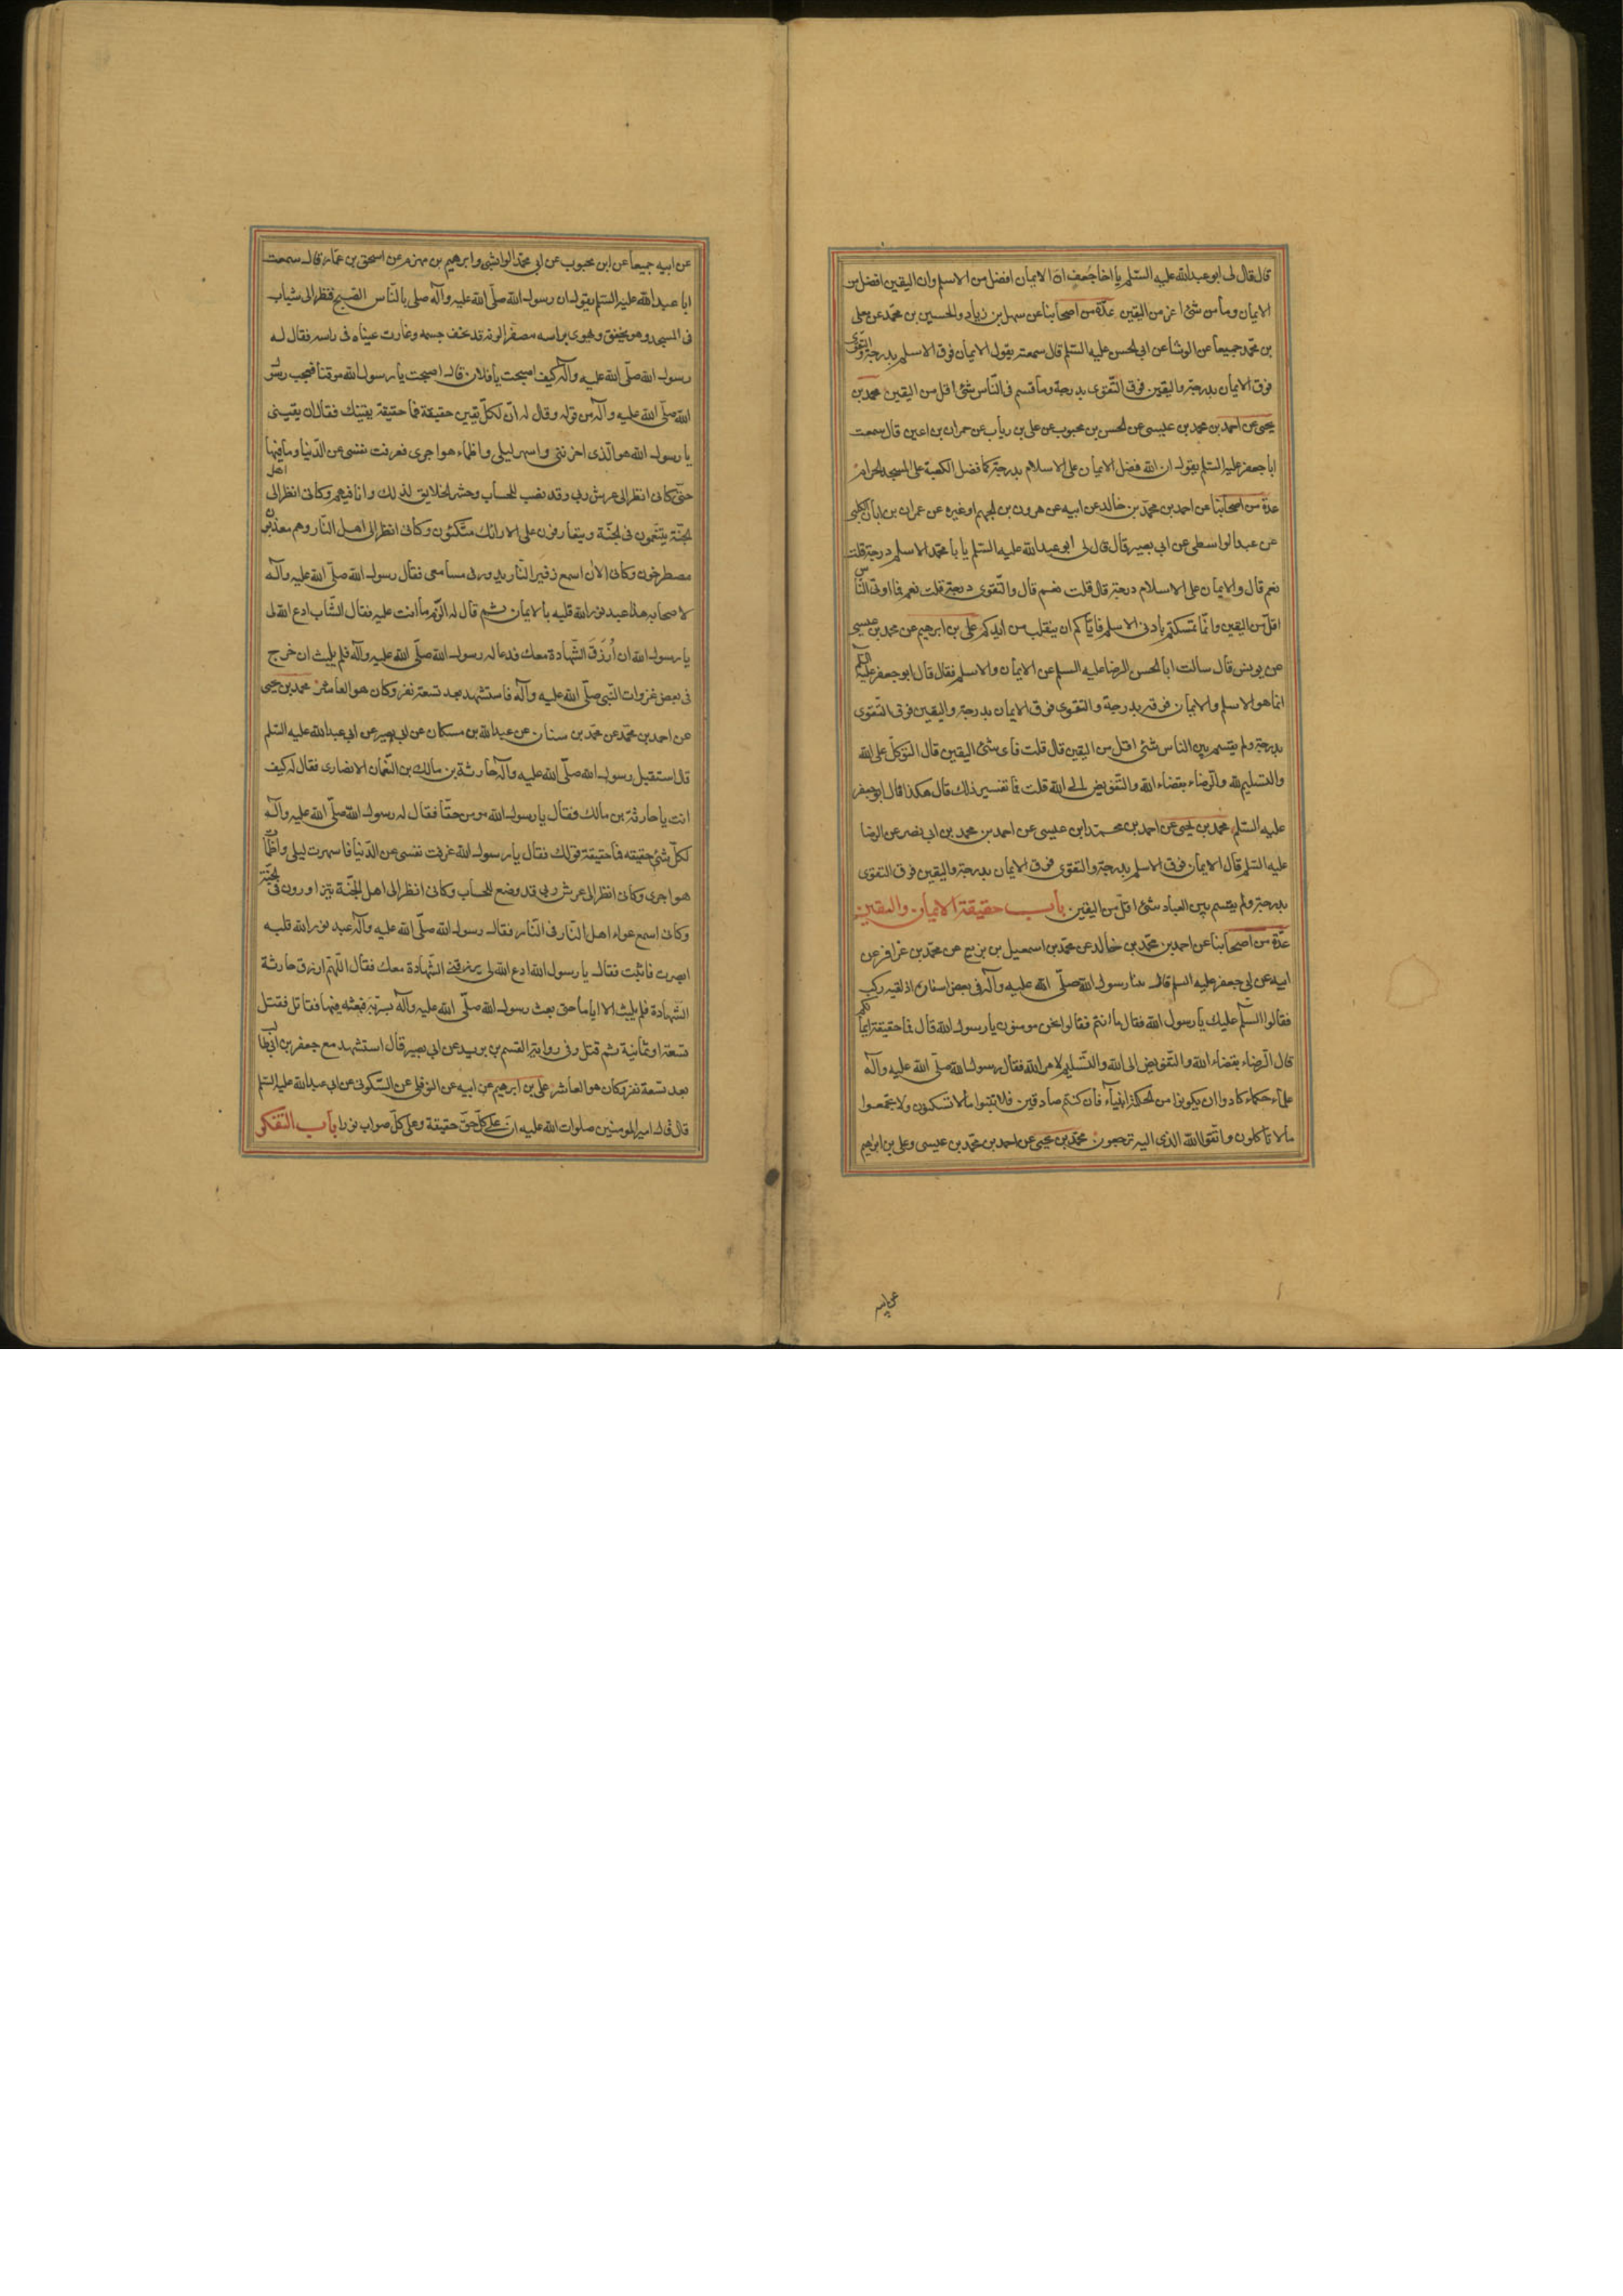 قال قال لى ابو عبدالله عليه السّلم يا اخا جُعف انّ الايمان افضل من الاسلم وان اليقين افضل من
الايمان وما من شئ اعز من اليقين عدّة من اصحابنا عن سهل بن زياد والحسين بن محمّد عن معلى
بن محمّد جميعا عن الوشا عن ابى الحسن عليه السّلم قال سمعته يقول الايمان فوق الاسلم بدرجة والتقوى
فوق الايمان بدرجة واليقين فوق التّقوى بدرجة وما قسم فى النّاس شئ اقل من اليقين محمد بن
يحيى عن احمد بن محمد بن عيسى عن الحسن بن محبوب عن على بن رياب عن حمران بن اعين قال سمعت
ابا جعفر عليه السّلم يقول ان الله فضل الايمان على الاسلام بدرجة كما فضل الكعبة على المسجد الحرام
عدّة من اصحابنا عن احمد بن محمّد بن خالد عن ابيه عن هرون بن الجهم او غيره عن عمران بن ابان الكلبى
عن عبد الواسطى عن ابى بصير قال قال لى ابو عبد الله عليه السّلم يا با محمّد الاسلم درجة قلت
نعم قال والايمان على الاسلام درجة قال قلت نعم قال والتّقوى درجة قلت نعم فما اوتى النّاس
اقلّ من اليقين وانّما تمسّكتم بادنى الاسلم فايّاكم ان ينفلت من ايديكم على بن ابرهيم عن محمد بن عيسى
عن يونس قال سالت ابا الحسن الرضا عليه السلم عن الايمان والاسلم فقال قال ابو جعفر عليه السّلم
انما هو الاسلم والايمان فوقه بدرجة والتقوى فوق الايمان بدرجة واليقين فوق التّقوى
بدرجة ولم يقسم بين الناس شئ اقل من اليقين قال قلت فاى شئ اليقين قال التوكّل على الله
والتسليم لله والرّضاء بقضاء الله والتّفويض الى الله قلت فما تفسير ذلك قال هكذا قال ابو جعفر
عليه السّلم محمد بن يحيى عن احمد بن محمد ابن عيسى عن احمد بن محمد بن ابى نصر عن الرضا
عليه السّلم قال الايمان فوق الاسلم بدرجة والتقوى فوق الايمان بدرجة واليقين فوق التقوى
بدرجة ولم يقسم بين العباد شئ اقلّ من اليقين باب حقيقة الايمان واليقين
عدّة من اصحابنا عن احمد بن محمّد بن خالد عن محمّد بن اسمعيل بن بزيع عن محمّد بن عزافر عن
ابيه عن ابى جعفر عليه السلم قال بينا رسول الله صلّى الله عليه وآله فى بعض اسفاره اذ لقيه ركب
فقالوا السّلم عليك يا رسول الله فقال ما انتم فقالوا نحن مومنون يا رسول الله قال فما حقيقة ايمانكم
قال الرّضاء بقضاء الله والتّفويض الى الله والتّسليم لامر الله فقال رسول الله صلّى الله عليه وآله
علماء حكماء كادوا ان يكونوا من الحكمة انبياء فان كنتم صادقين فلا تبنوا ما لا تسكنون ولا تجمعوا
ما لا تاكلون واتّقوا الله الذى اليه ترجعون محمّد بن يحيى عن احمد بن محمّد بن عيسى وعلى بن ابراهيم
عن ابيه
عن ابيه جميعا عن ابن محبوب عن ابى محمّد الوابشى وابرهيم بن مهزم عن اسحق بن عمّار قال سمعت
ابا عبد الله عليه السّلم يقول ان رسول الله صلّى الله عليه وآله صلى بالنّاس الصّبح فنظر الى شاب
فى المسجد وهو يخفق ويهوى براسه مصفّرا لونه قد نحف جسمه وغارت عيناه فى راسه فقال له
رسول الله صلّى الله عليه وآله كيف اصبحت يا فلان قال اصبحت يا رسول الله موقنا فعجب رسول
الله صلّى الله عليه وآله من قوله وقال له انّ لكلّ يقين حقيقة فما حقيقة يقينك فقال ان يقينى
يا رسول الله هو الّذى احزننى واسهر ليلى واظماء هواجرى فعزفت نفسى عن الدّنيا وما فيها
حتّى كانى انظر الى عرش ربى وقد نصب للحساب وحشر الخلايق لذلك وانا فيهم وكانى انظر الى اهل
الجنّة يتنعّمون فى الجنّة ويتعارفون على الارائك متّكئون وكانى انظر الى اهل النّار وهم معذّبون
مصطرخون وكانى الان اسمع زفير النّار يدور فى مسامعى فقال رسول الله صلّى الله عليه وآله
لاصحابه هذا عبد نوّر الله قلبه بالايمان ثم قال له الزم ما انت عليه فقال الشّاب ادع الله لى
يا رسول الله ان اُرزَقَ الشّهادة معك فدعا له رسول الله صلّى الله عليه وآله فلم يلبث ان خرج
فى بعض غزوات النّبى صلّى الله عليه وآله فاستشهد بعد تسعة نفر وكان هو العاشر محمد بن يحيى
عن احمد بن محمّد عن محمّد بن سنان عن عبد الله بن مسكان عن ابى بصير عن ابى عبد الله عليه السّلم
قال استقبل رسول الله صلّى الله عليه وآله حارثة بن مالك بن النّعمان الانصارى فقال له كيف
انت يا حارثة بن مالك فقال يا رسول الله مومن حقّا فقال له رسول الله صلّى الله عليه وآله
لكلّ شئ حقيقته فما حقيقة قولك فقال يا رسول الله عزفت نفسى عن الدّنيا فاسهرت ليلى واظمأت
هواجرى وكانى انظر الى عرش ربى قد وضع للحساب وكانى انظر الى اهل الجنّة يتزاورون فى الجنّة
وكانى اسمع عواء اهل النّار فى النّار فقال رسول الله صلّى الله عليه وآله عبد نوّر الله قلبه
ابصرت فاثبت فقال يا رسول الله ادع الله لى يرزقنى الشّهادة معك فقال اللّهمّ ارزق حارثة
الشّهادة فلم يلبث الا اياما حتى بعث رسول الله صلّى الله عليه وآله بسريّة فبعثه فيها فقاتل فقتل
تسعة او ثمانية ثم قتل وفى رواية القسم بن بريد عن ابى بصير قال استشهد مع جعفر بن ابى طالب
بعد تسعة نفر وكان هو العاشر على بن ابرهيم عن ابيه عن النوفلى عن السّكونى عن ابى عبد الله عليه السّلم
قال قال امير المومنين صلوات الله عليه انّ على كلّ حقّ حقيقة وعلى كلّ صواب نورا باب التّفكر